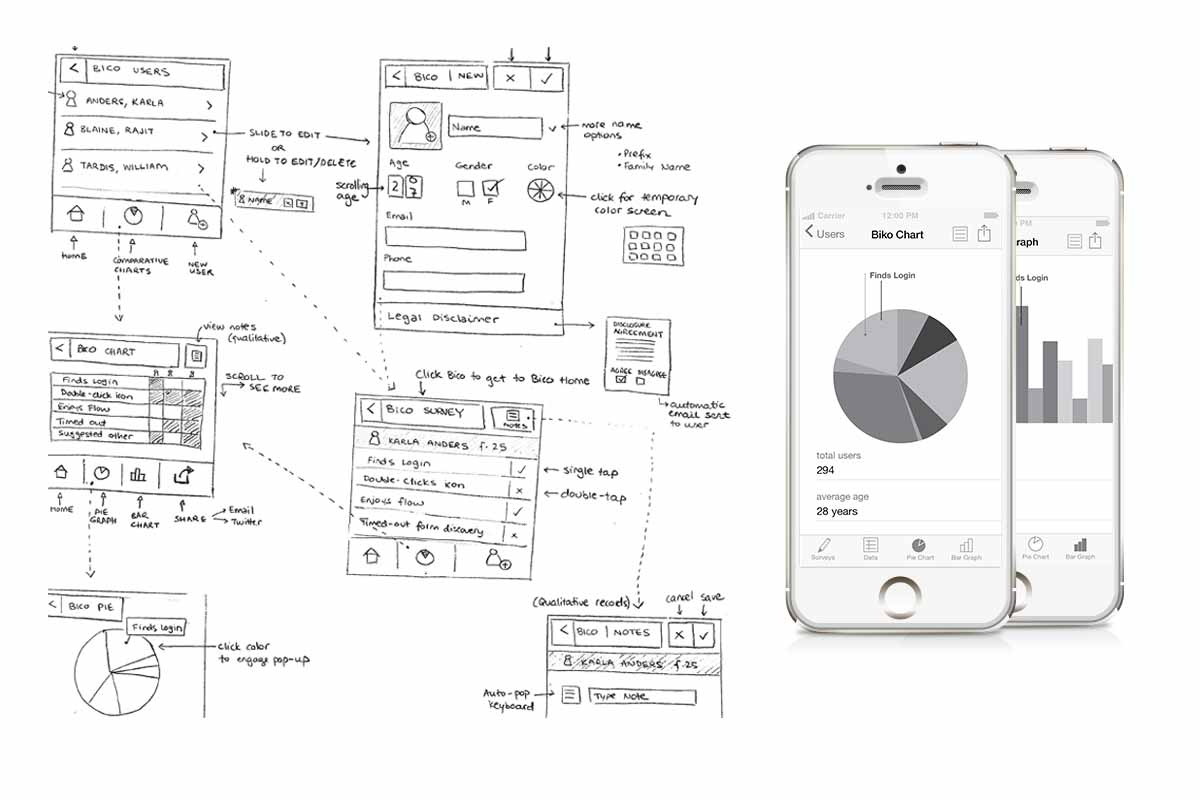 BICO USERS
ANDERS, KARLA
BLAINE, RAJIT
TARDIS, WILLIAM
HOME
COMPARATIVE
CHARTS
NEW
USER
SLIDE TO EDIT
OR
HOLD TO EDIT/DELETE
NAME
BICO | NEW
Name
more name
options
• Prefix
• Family Name
Age
Gender
Color
scrolling
age
2 0
7
M F
click for temporary
color screen
Email
Phone
Legal Disclaimer
DISCLOSURE
AGREEMENT
AGREE DISAGREE
automatic
email sent
to user
view notes
(qualitative)
BIKO CHART
SCROLL TO
SEE MORE
Finds Login
Double-click icon
Enjoys Flow
Timed out
Suggested other
HOME
PIE
GRAPH
BAR
CHART
SHARE
Email
Twitter
Click Bico to get to Bico Home
BICO SURVEY
NOTES
KARLA ANDERS f. 25
Finds Login
Double-clicks icon
Enjoys flow
Timed-out form discovery
single tap
double-tap
BICO PIE
Finds Login
click color
to engage pop-up
(Qualitative records)
cancel save
BICO | NOTES
KARLA ANDERS f. 25
Auto-pop
keyboard
TYPE NOTE
Carrier
12:00 PM
Users
Biko Chart
Finds Login
total users
294
average age
28 years
Surveys
Data
Pie Chart
Bar Graph
PM
raph
ds Login
Pie Chart
Bar Graph